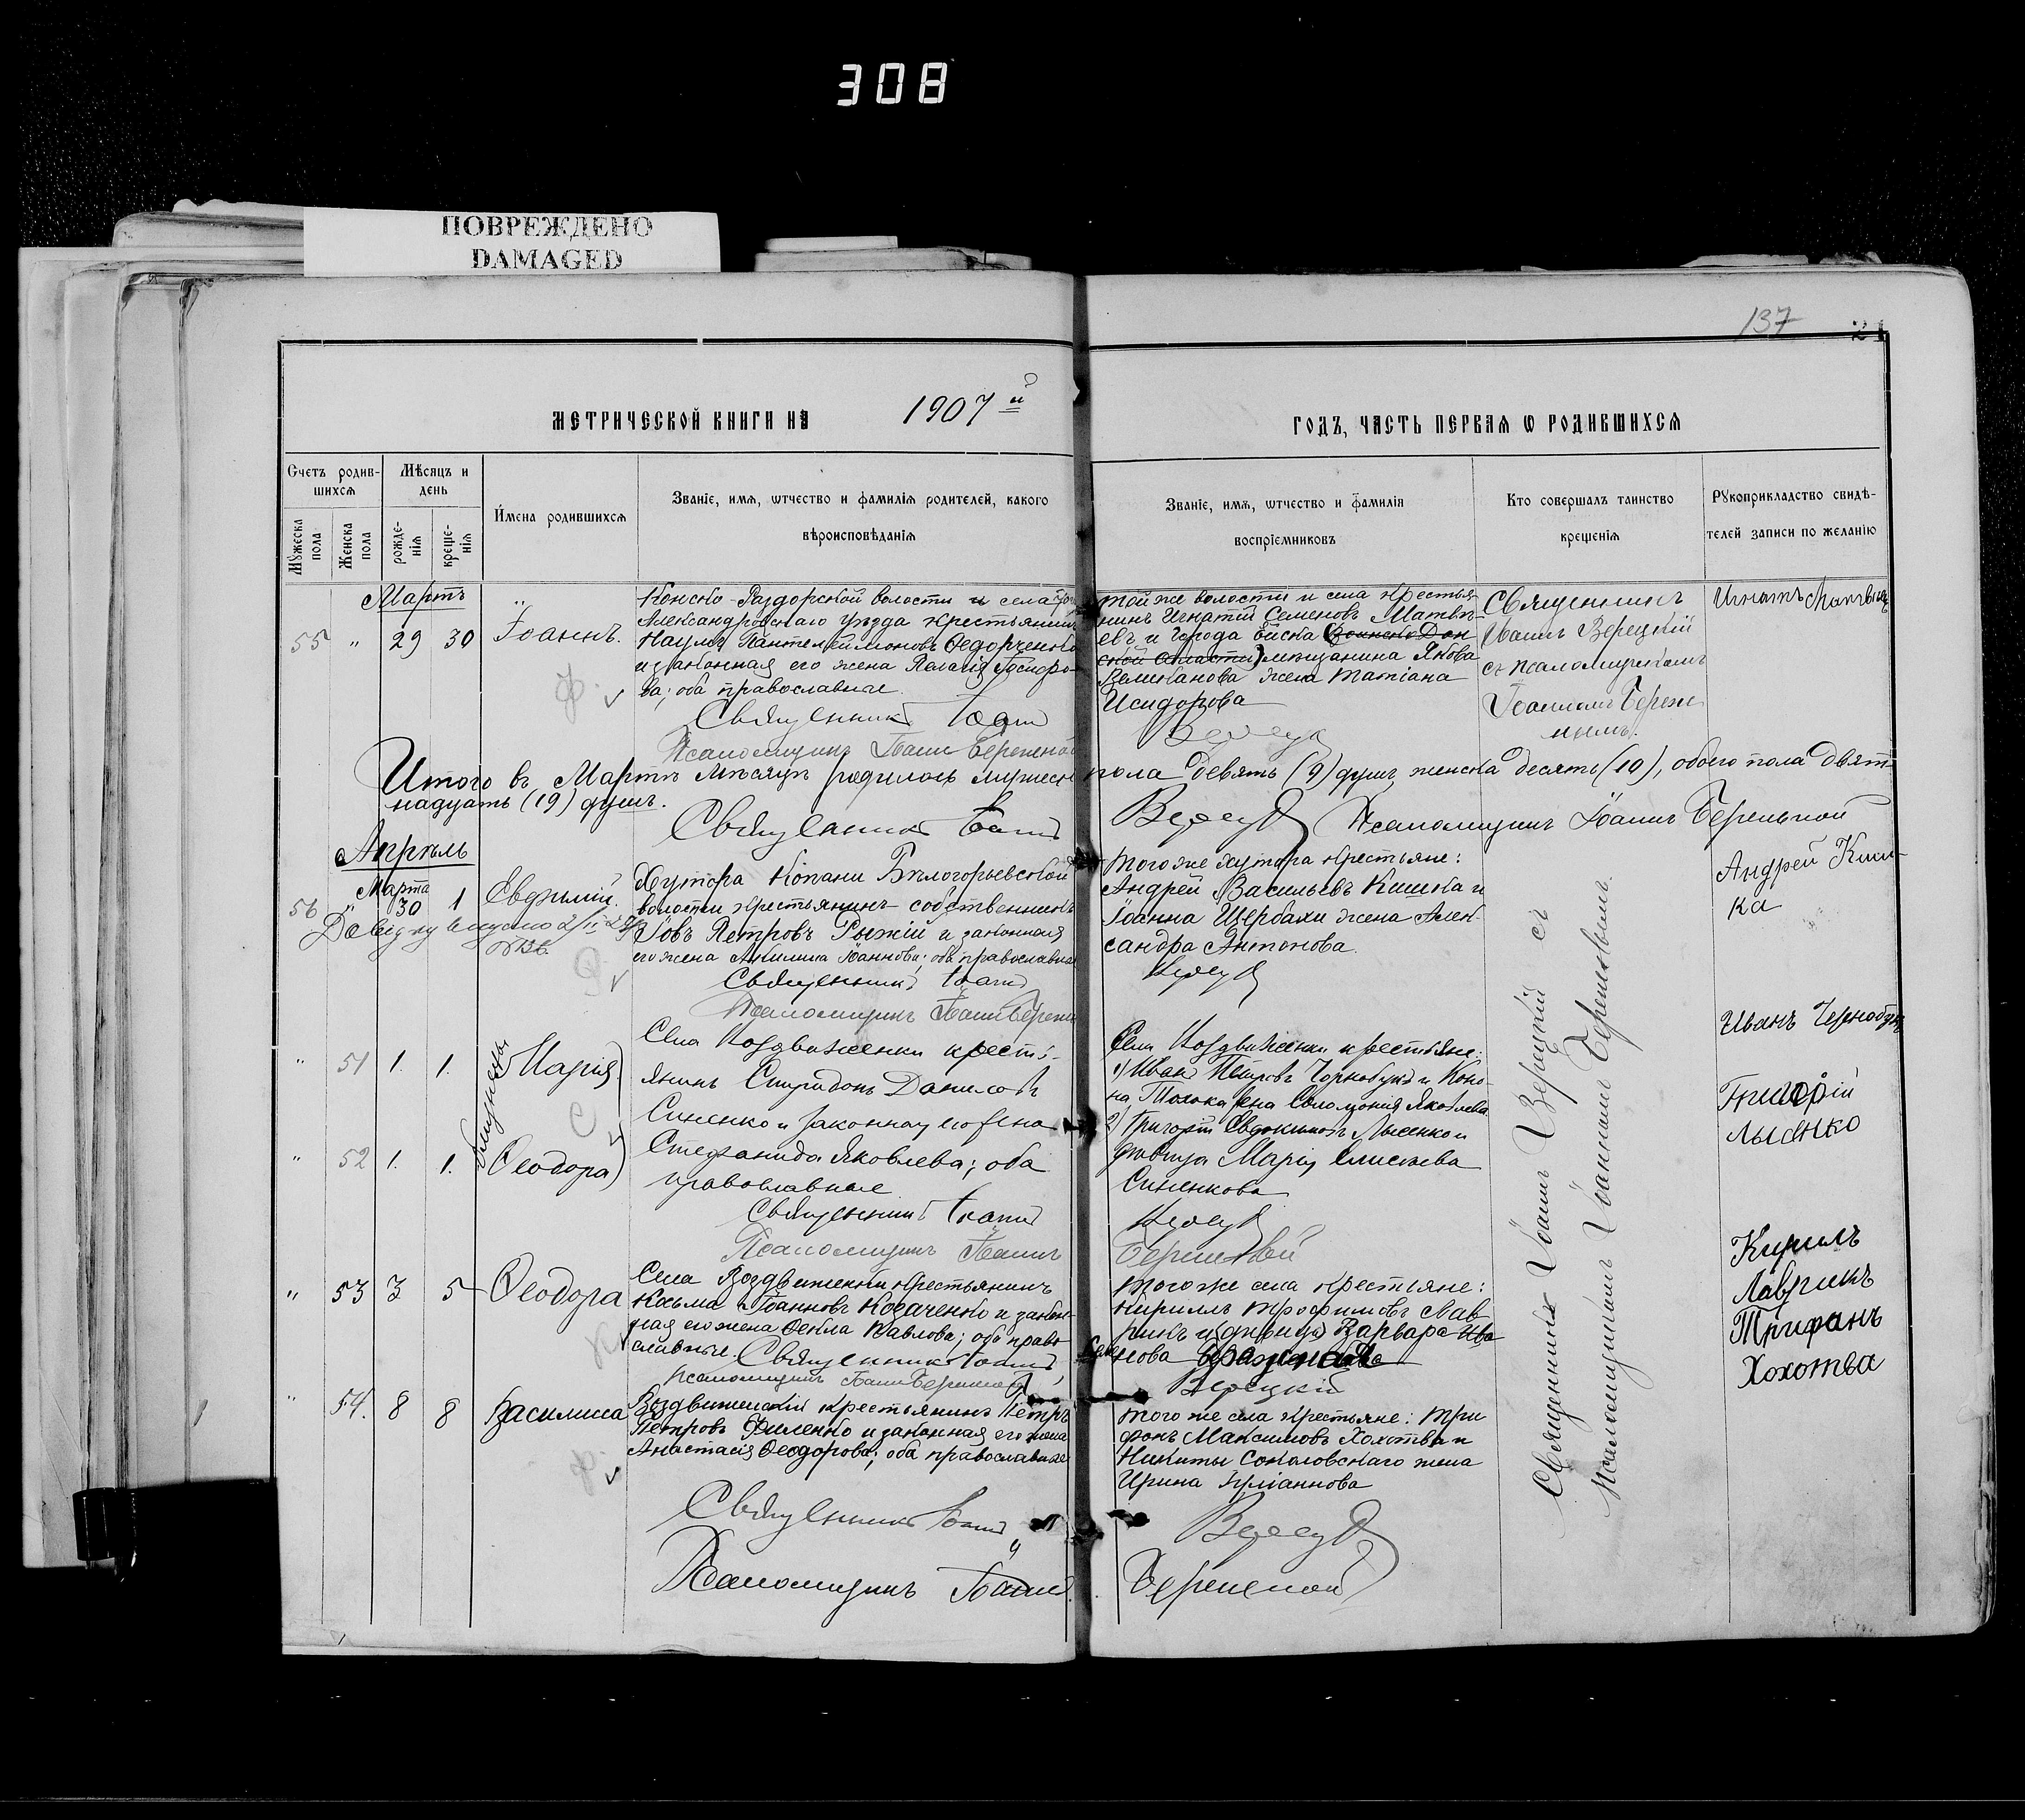 308
ПОВРЕЖДЕНО
DAMAGED
137
21
МЕТРИЧЕСКОЙ КНИГИ НА 1907 й
ГОДЪ, ЧАСТЬ ПЕРВАЯ Ѡ РОДИВШИХСЯ
Счетъ родив-
шихся
Мѣсяцъ и
день
Мужеска
пола
Женска
пола
рожде-
нія
креще-
нія
Имена родившихся
Званіе, имя, ѡтчество и фамилія родителей, какого
вѣроисповѣданія
Званіе, имя, ѡтчество и фамилія
воспріемниковъ
Кто совершалъ таинство
крещенія
Рукоприкладство свидѣ-
телей записи по желанію
Мартъ
55 " 29 30 Іоаннъ.
Конско-Раздорской волости и села
Александровскаго уѣзда крестьянинъ
Наумъ Пантелеймоновъ Ѳедорченко
и законная его жена Пелагія
ва; оба православные.
Священникъ Іоаннъ
Псаломщикъ Іоаннъ Бережной
той же волости и села крестья-
нинъ Игнатій Семеновъ Матвѣ-
евъ и города Ейска Дон
ской области) мѣщанина Якова
жена Татіана
Исидорова
Священникъ
Іоаннъ Верецкій
съ псаломщикомъ
Іоанномъ Береж
нымъ.
Игнатъ
Итого въ Мартѣ мѣсяцѣ родилось мужеск пола девять (9) душъ, женска десять (10), обоего пола девят-
надцать (19) душъ.
Священникъ Іоаннъ
Псаломщикъ Іоаннъ Бережной
Апрѣль
Марта
56 " 30 1 Евфимій.
Хутора Копани Бѣлогорьевской
волости крестьянинъ-собственникъ
Іовъ Петровъ Рыжій и законная
его жена Акилина Іоаннова; оба православные
Священникъ Іоаннъ
Псаломщикъ Іоаннъ
того же хутора крестьяне:
Андрей Васильевъ Кишка и
Іоанна Щербахи жена Алек-
сандра Антонова.
Андрей Киш-
ка
близнецы
" 51 1. 1. Марія
Села Воздвиженки кресть-
янинъ Спиридонъ Даниловъ
Синенко и законная его жена
" 52 1. 1. Ѳеодора
Стефанида Яковлева; оба
православные
Священникъ Іоаннъ
Псаломщикъ Іоаннъ
Села Воздвиженки крестьяне:
1) Иванъ Петровъ Чернобукъ и Коно-
на Толока жена Соломонія Яковлева
2) Григорій Евдокимовъ Лысенко и
дѣвица Марія Елисѣева
Синенкова
Бережной
Иванъ
Григорій
Лысенко
" 53 3 5 Ѳеодора
Села Воздвиженки крестьянинъ
Косьма Іоанновъ Козаченко и закон-
ная его жена Ѳекла Павлова; оба право-
славные. Священникъ Іоаннъ
Псаломщикъ Іоаннъ Бережной
того же села крестьяне:
Кириллъ Трофимовъ Лав
рикъ и (дѣвица) Варвара Ива
нова
Верецкій
Кирилъ
Лаврикъ
" 54. 8 8 Василисса
Воздвиженскій крестьянинъ Петръ
Петровъ Филенко и законная его жена
Анастасія Ѳеодорова; оба православные
Священникъ Іоаннъ
Псаломщикъ Іоаннъ
того же села крестьяне: Три
фонъ Максимовъ Хохотва и
Никиты Соколовскаго жена
Ирина
Бережной
Трифанъ
Хохотва
Священникъ Іоаннъ Верецкій съ
псаломщикомъ Іоанномъ Бережнымъ.